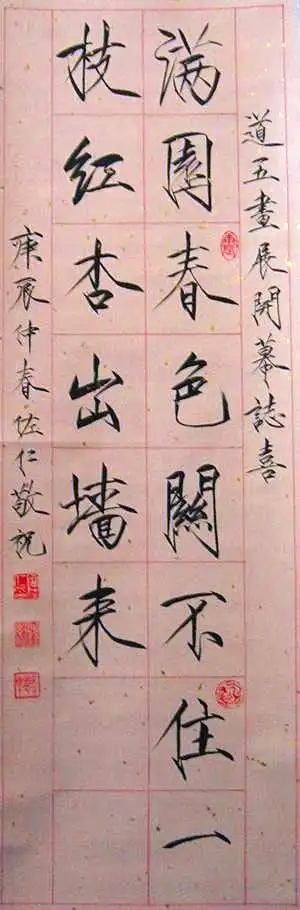 道五畫展開幕誌喜
满園春色關不住一
枝红杏出墻来
庚辰仲春佐仁敬祝